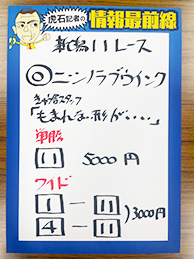 虎石記者の 情報最前線
新潟11レース
◎ニシノラブウインク
きゅう舎スタッフ
「もまれない形が・・・」
単勝
11 5000円
ワイド
1－11
4－11 )3000円